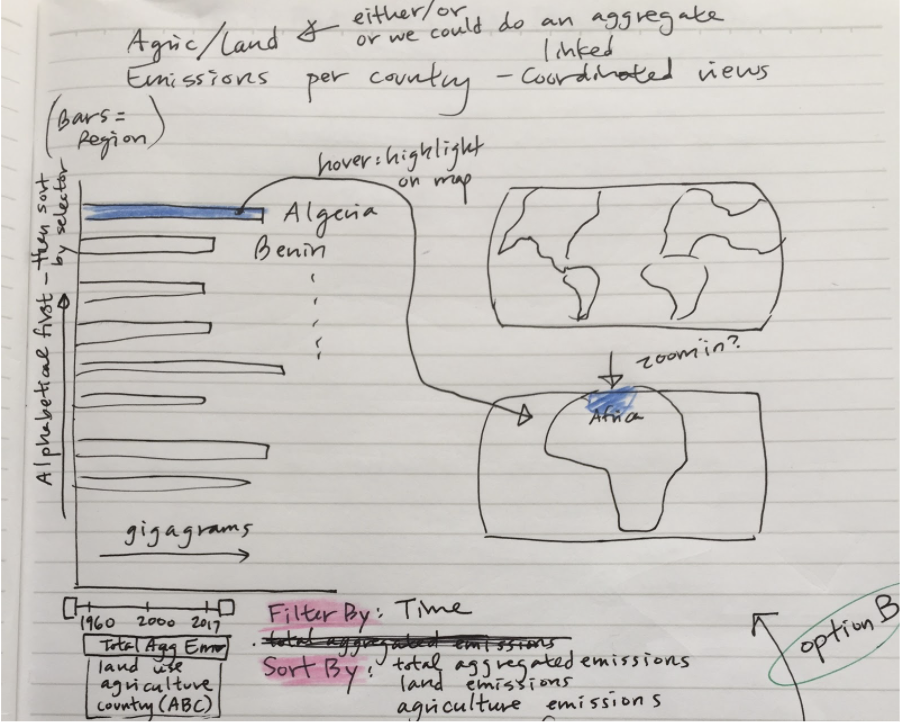 either/or
Agric/land or we could do an aggregate
linked
Emissions per country - coordinated views
(Bars =
Region)
hover: highlight
on map
Alphabetical first - then sort
by selector
Algeria
Benin
zoom in?
Africa
gigagrams
1960 2000 2017
Filter By: Time
total aggregated emissions
Total Agg
land use
agriculture
country (ABC)
Sort By: total aggregated emissions
land emissions
agriculture emissions
option B